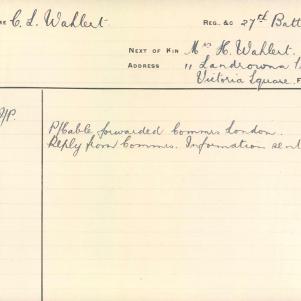 C. L. Wahlert REG. &C 27th Batt
NEXT OF KIN Mrs H. Wahlert.
ADDRESS "Landrowna
Victoria Square.
P/Cable forwarded Commrs London.
Reply from Commrs. Information sent